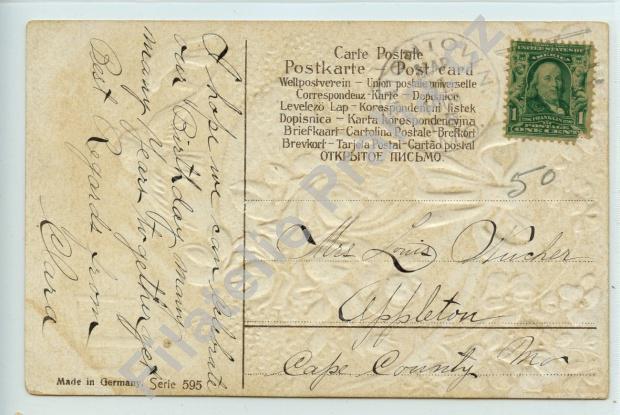 I hope we can celebrate
our Birthday many
many years together yet
Best Regards from
Clara
Carte Postale
Postkarte – Post card
Weltpostverein - Union postale universelle
Correspondenz-Karte - Dopisnice
Levelező Lap - Korespondenční listek
Dopisnica - Karta korespondencyjna
Briefkaart - Cartolina Postale - Brefkort
Brevkort - Tarjeta Postal - Cartão postal
ОТКРЫТОЕ ПИСЬМО.
UNITED STATES OF
AMERICA
FRANKLIN
1 1
POSTAGE
ONE CENT
50
Mrs Louis Wucher
Appleton
Cape County Mo
Made in Germany. Serie 595